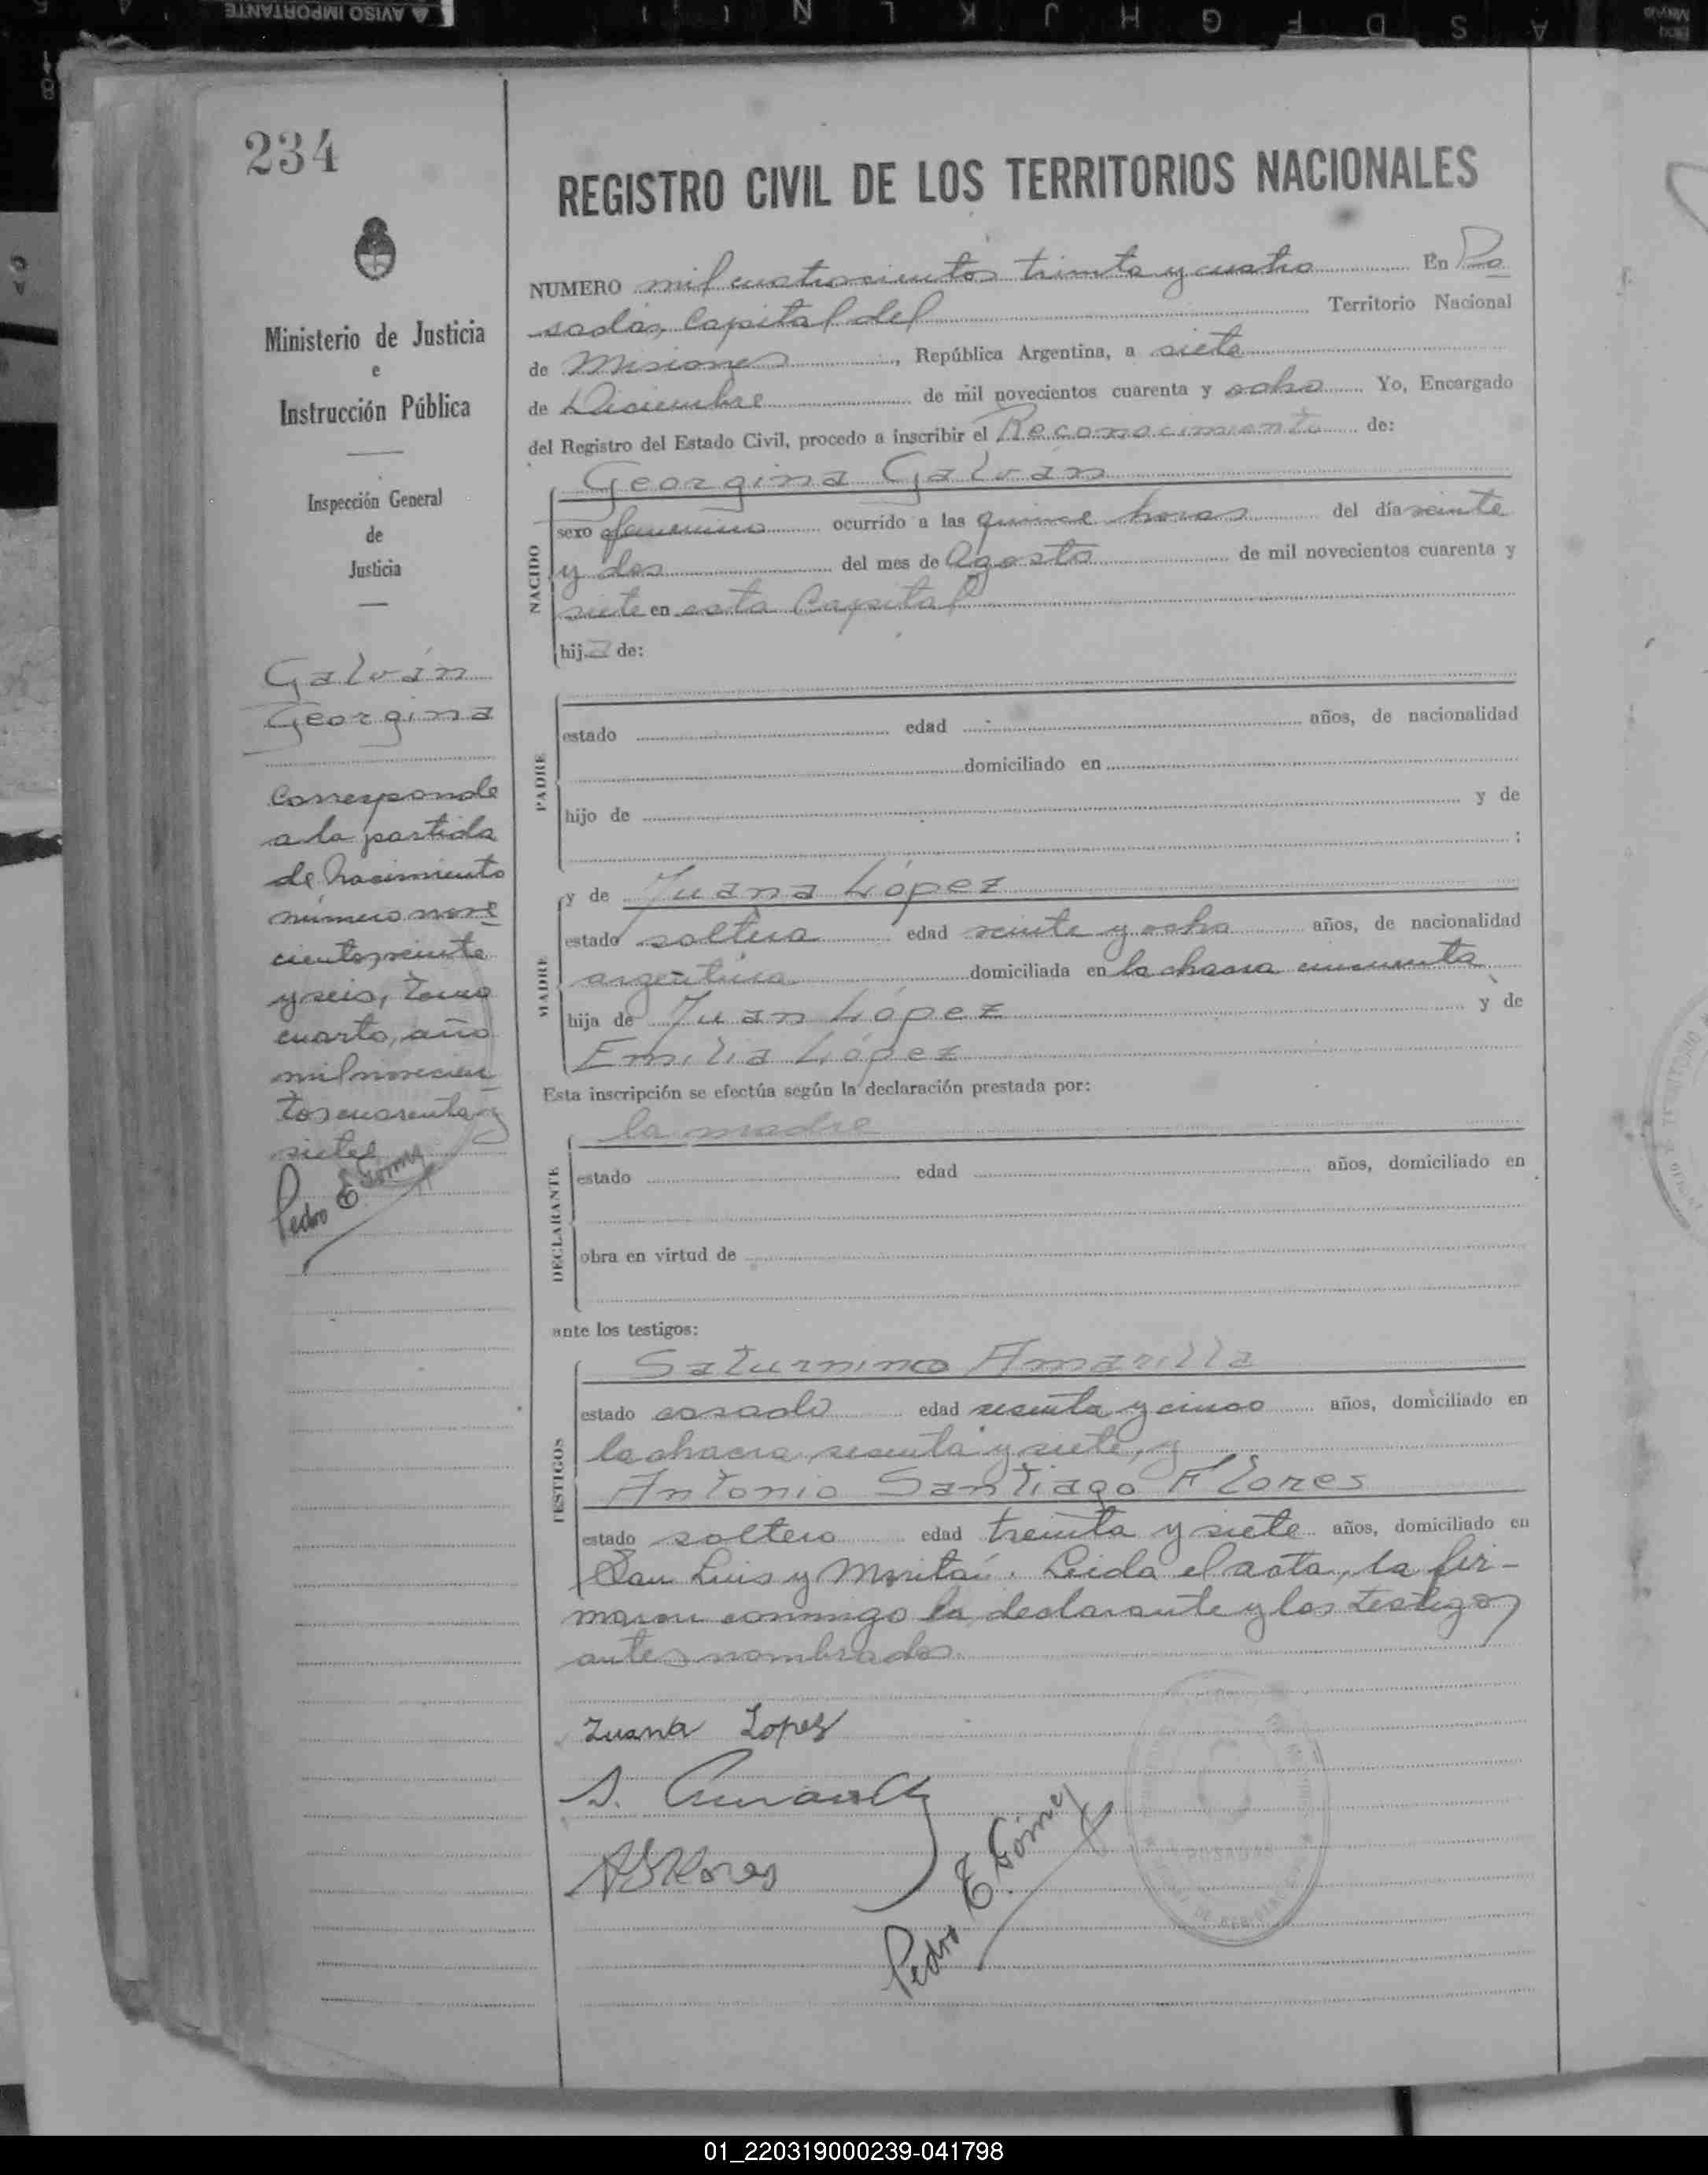 234
REGISTRO CIVIL DE LOS TERRITORIOS NACIONALES
Ministerio de Justicia
e
Instrucción Pública
Inspección General
de
Justicia
Galván
Georgina
Corresponde
a la partida
de Nacimiento
número nove
cientos veinte
y seis, Tomo
cuarto, año
mil novecien
tos cuarenta y
siete
Pedro E. Gómez
NUMERO mil cuatrocientos treinta y cuatro En Po
sadas, Capital del Territorio Nacional
de Misiones, República Argentina, a siete
de Diciembre de mil novecientos cuarenta y ocho Yo, Encargado
del Registro del Estado Civil, procedo a inscribir el Reconocimiento de:
Georgina Galván
NACIDO
sexo femenino ocurrido a las quince horas del día veinte
y dos del mes de Agosto de mil novecientos cuarenta y
siete en esta Capital
hija de:
PADRE
estado edad años, de nacionalidad
domiciliado en
hijo de y de
;
y de Juana López
MADRE
estado soltera edad veinte y ocho años, de nacionalidad
argentina domiciliada en la chacra cincuenta
hija de Juan López y de
Emilia López
Esta inscripción se efectúa según la declaración prestada por:
la madre
DECLARANTE
estado edad años, domiciliado en
obra en virtud de
ante los testigos:
Saturnino Amarilla
TESTIGOS
estado casado edad sesenta y cinco años, domiciliado en
la chacra sesenta y siete, y
Antonio Santiago Flores
estado soltero edad treinta y siete años, domiciliado en
San Luis y Moritán. Leida el acta, la fir-
maron conmigo la declarante y los testigos
antes nombrados.
Juana Lopez
S. Amarilla
ASFlores
Pedro E. Gómez
POSADAS
01_220319000239-041798